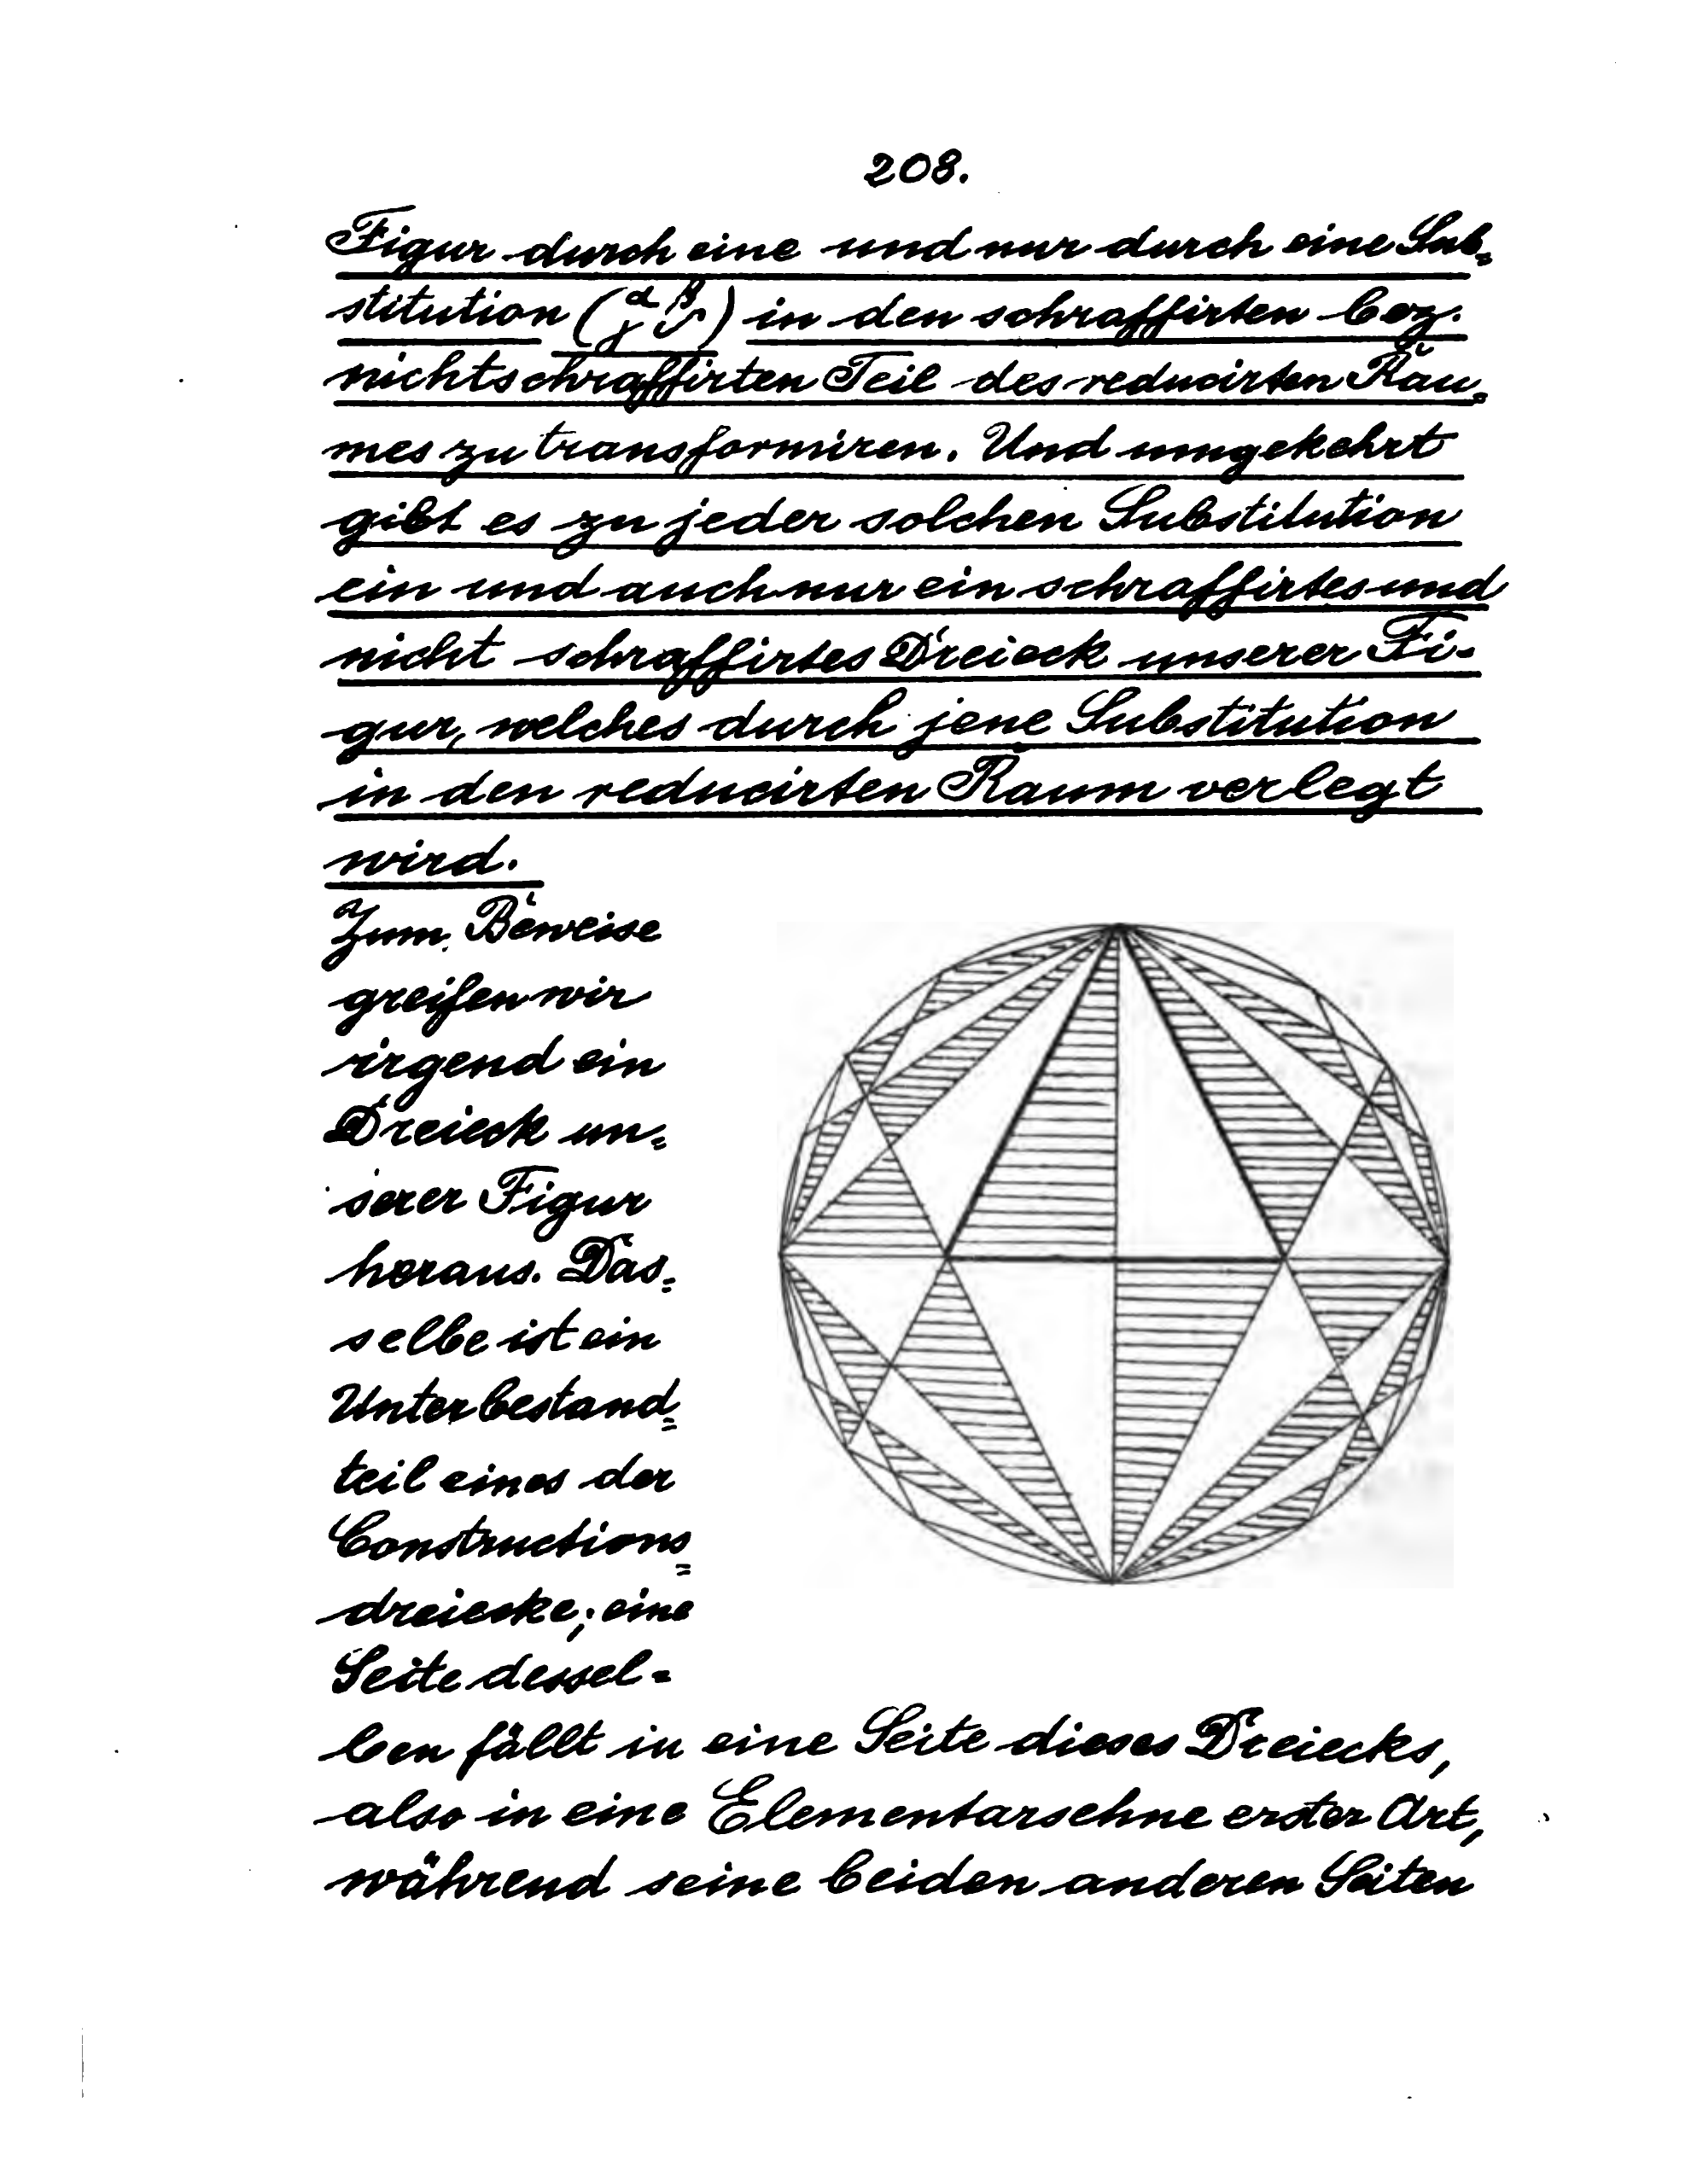 208.
Figur durch eine und nur durch eine Sub=
stitution (α β γ δ) in den schraffirten bez.
nichtschraffirten Teil des reducirten Rau=
mes zu transformiren. Und umgekehrt
gibt es zu jeder solchen Substitution
ein und auch nur ein schraffirtes und
nicht schraffirtes Dreieck unserer Fi-
gur, welches durch jene Substitution
in den reducirten Raum verlegt
wird.
Zum Beweise
greifen wir
irgend ein
Dreieck un=
serer Figur
heraus. Das=
selbe ist ein
Unterbestand=
teil eines der
Constructions=
dreiecke; eine
Seite dessel=
ben fällt in eine Seite dieses Dreiecks,
also in eine Elementarsehne erster Art,
während seine beiden anderen Seiten